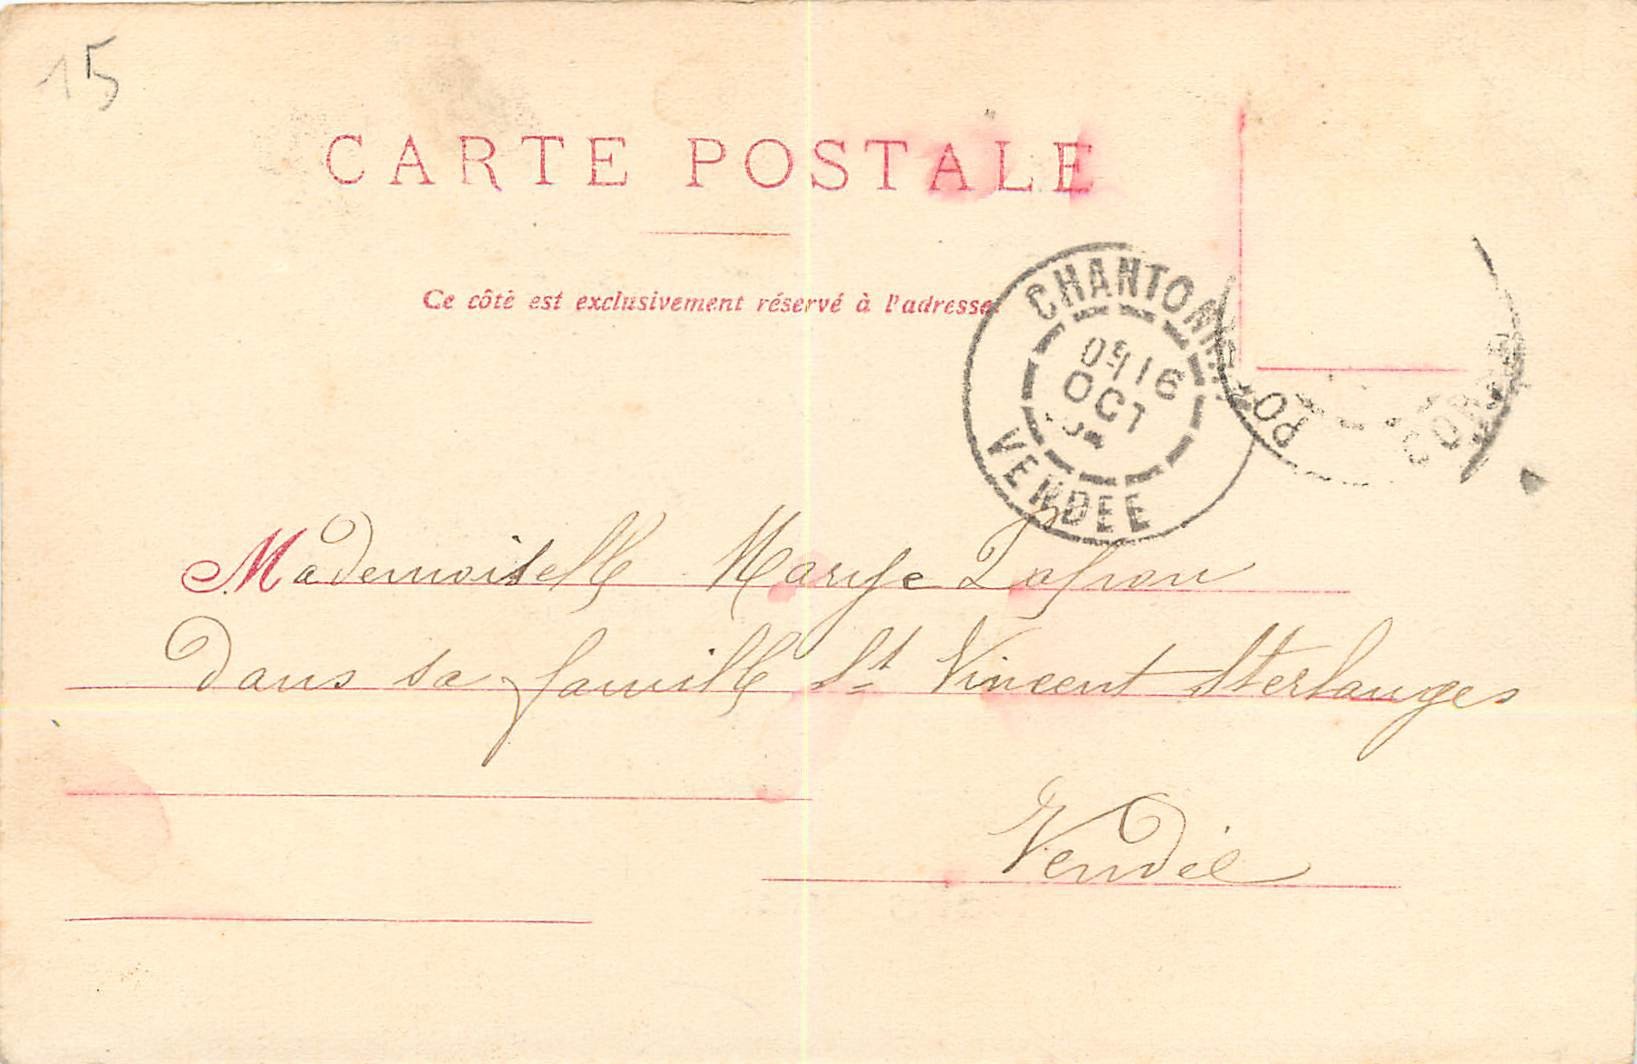 15
CARTE POSTALE
Ce côté est exclusivement réservé à l'adresse.
CHANTONNAY
16
OCT
VENDEE
Mademoiselle Marye Lafron
Dans sa famille St Vincent Sterlanges
Vendée